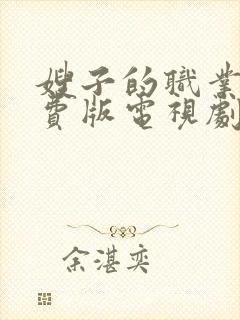 嫂子的職業
費版電視劇
余湛奕